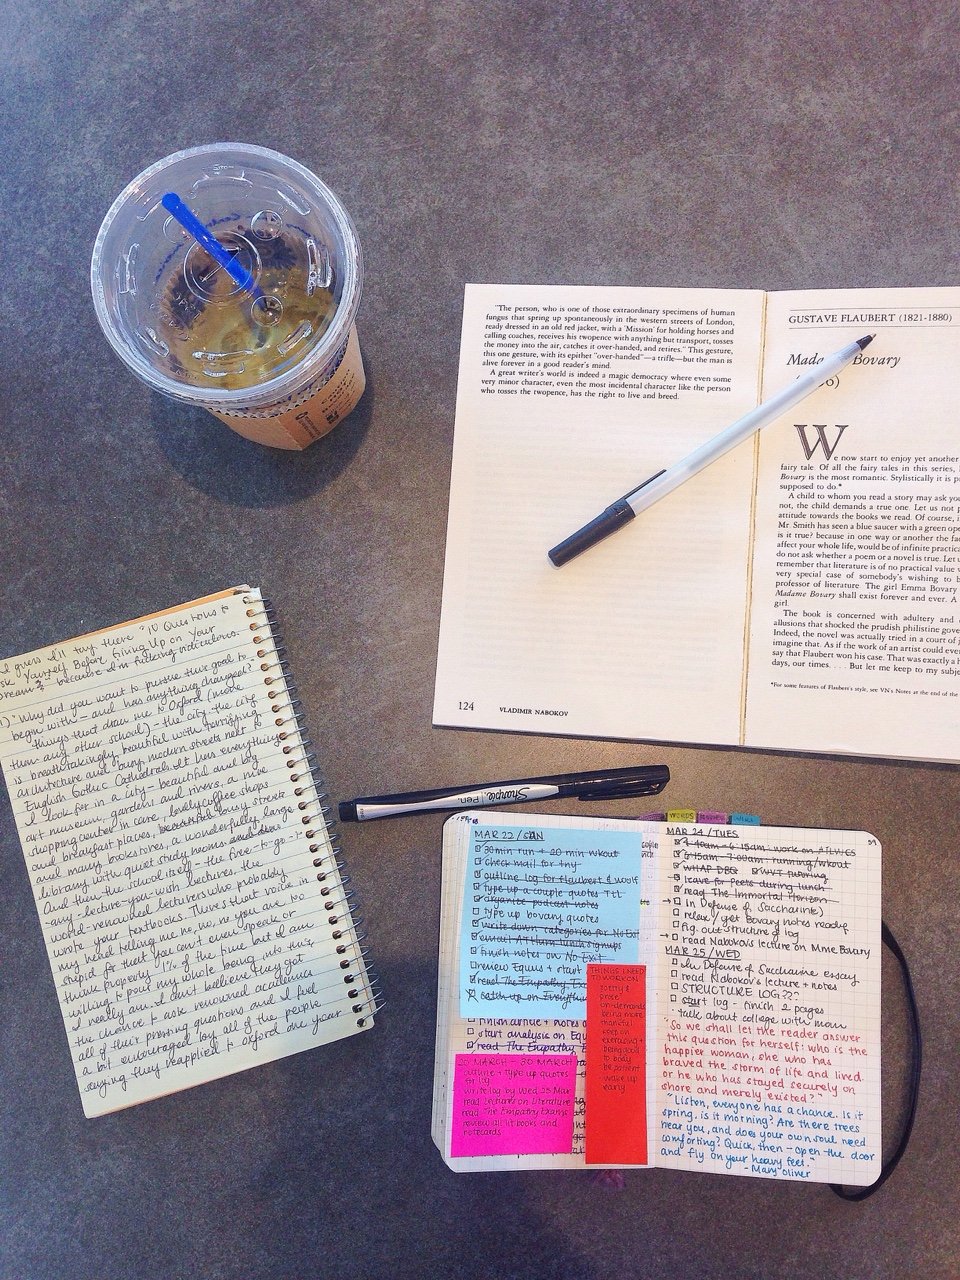 "The person, who is one of those extraordinary specimens of human
fungus that spring up spontaneously in the western streets of London,
ready dressed in an old red jacket, with a 'Mission' for holding horses and
calling coaches, receives his twopence with anything but transport, tosses
the money into the air, catches it over-handed, and retires." This gesture,
this one gesture, with its epithet "over-handed"—a trifle—but the man is
alive forever in a good reader's mind.
A great writer's world is indeed a magic democracy where even some
very minor character, even the most incidental character like the person
who tosses the twopence, has the right to live and breed.
124 VLADIMIR NABOKOV
GUSTAVE FLAUBERT (1821-1880)
Bovary
We now start to enjoy yet another
fairy tale. Of all the fairy tales in this series,
Bovary is the most romantic. Stylistically it is
supposed to do.*
A child to whom you read a story may ask you
not, the child demands a true one. Let us not
attitude towards the books we read. Of course,
Mr. Smith has seen a blue saucer with a green
is it true? because in one way or another the
affect your whole life, would be of infinite
do not ask whether a poem or a novel is true. Let
remember that literature is of no practical value
very special case of somebody's wishing to
professor of literature. The girl Emma Bovary
Madame Bovary shall exist forever and ever. A
girl.
The book is concerned with adultery and
allusions that shocked the prudish philistine
Indeed, the novel was actually tried in a court of
imagine that. As if the work of an artist could ever
say that Flaubert won his case. That was exactly a
days, our times. . . . But let me keep to my
*For some features of Flaubert's style, see VN's Notes at the end of the
I guess I'll try there "10 Questions to
Yourself Before Giving Up on Your
because I'm fucking ridiculous.
1) "Why did you want to pursue this goal to
begin with – and has anything changed?
things that draw me to Oxford (more
than any other school) – the city. the city
is breathtakingly beautiful with
architecture and busy modern streets next to
English Gothic Cathedrals. It has everything
I look for in a city – beautiful and big
art museum, gardens and rivers, a nice
shopping center, lovely coffee shops
and breakfast places, busy streets
and many bookstores, a wonderfully large
library with quiet study rooms
And then the school itself – the free-to-go-to
-any-lecture-you-wish lectures, the
world-renowned lecturers who probably
wrote your textbooks. There's that voice in
my head telling me no, no, no you are too
stupid for that you can't even speak or
think properly 1% of the time but I am
willing to pour my whole being into this,
I really am. I can't believe they got
the chance to ask renowned academics
all of their questions and I feel
a bit encouraged by all of the people
saying they reapplied to Oxford one year
Sharpie Pen.
WORDS
MAR 22 / SUN
30 min run + 20 min wkout
check mail for tny
outline log for flaubert & woolf
type up a couple quotes TtL
organize podcast notes
type up bovary quotes
write down categories for No Exit
email ATHum lunch signups
finish notes on No Exit
review Equus + start
read The Empathy
catch up on everything
start analysis on
read The Empathy
20 MARCH – 30 MARCH
outline + type up quotes
for log
write log by Wed 25 Mar
read Lectures on Literature
read The Empathy Exams
review all lit books and
notecards
THINGS I NEED
TO WORK ON
poetry &
prose
on-demands
being more
thankful
keep on
exercising +
being good
to body
be patient
wake up
early
MAR 24 / TUES
running/wkout
WHAP DBQ tutoring
leave for Peets during lunch
read The Immortal Horizon
In Defense of Saccharin(e)
relax / get Bovary notes ready
fig. out structure of log
read Nabokov's lecture on Mme Bovary
MAR 25 / WED
In Defense of Saccharine essay
read Nabokov's lecture + notes
STRUCTURE LOG???
start log – finish 2 pages
talk about college with mom
"So we shall let the reader answer
this question for herself: who is the
happier woman, she who has
braved the storm of life and lived
or he who has stayed securely on
shore and merely existed?"
"Listen, everyone has a chance. Is it
spring, is it morning? Are there trees
near you, and does your own soul need
comforting? Quick, then – open the door
and fly on your heavy feet."
- Mary Oliver